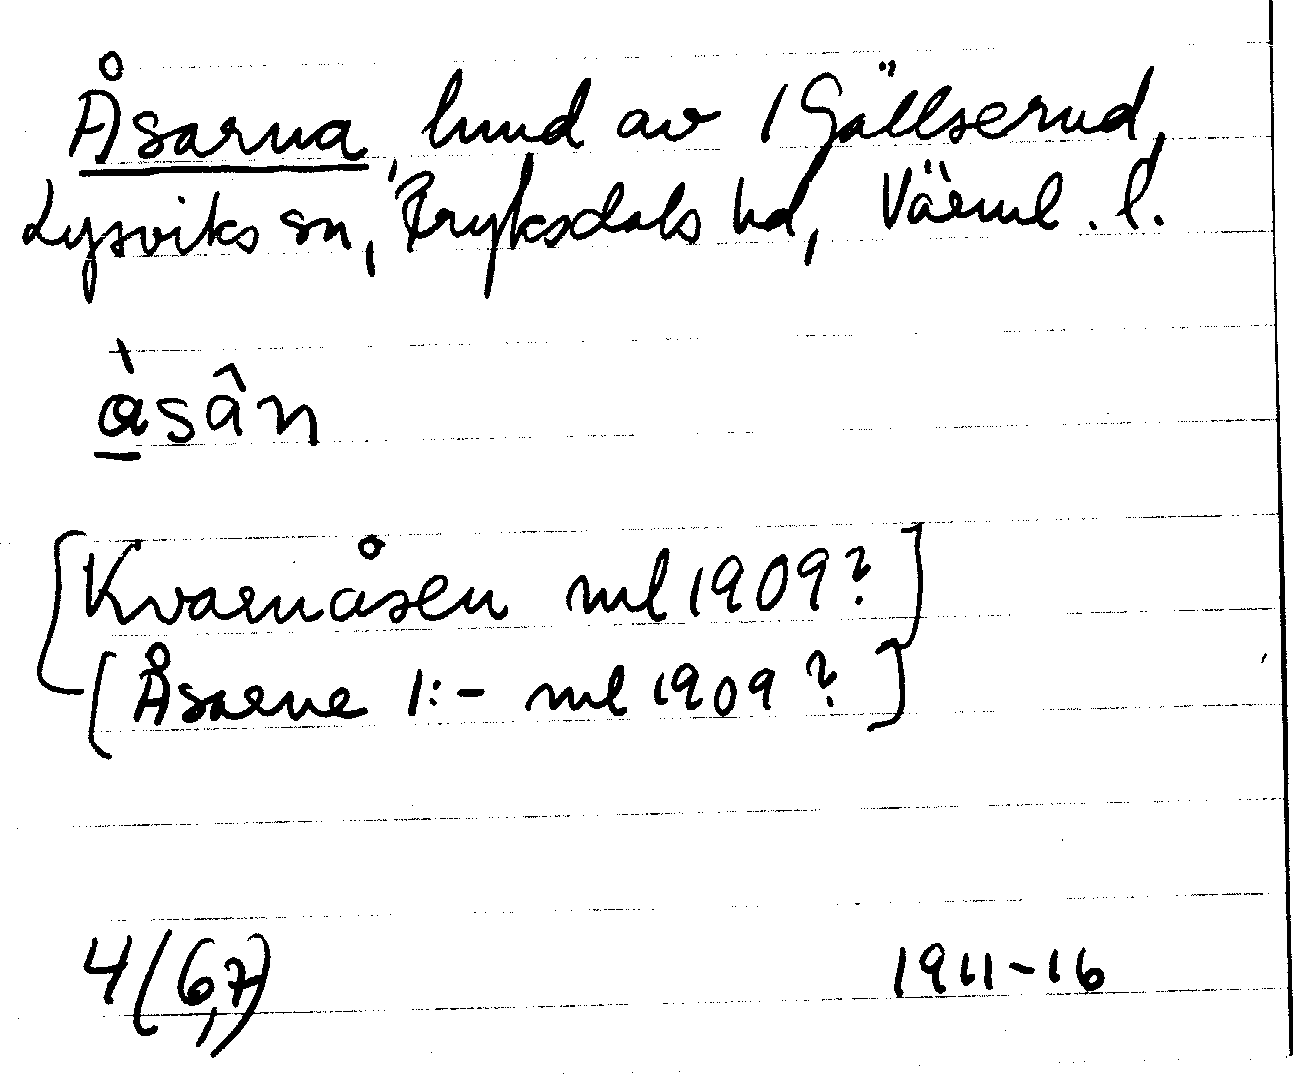 Åsarna, hmd av 1 Gällserud,
Lysviks sn, Fryksdals hd, Värml. l.
åsân
[Kvarnåsen ml 1909?]
[Åsarne 1:- ml 1909?]
4(6,7) 1911-16